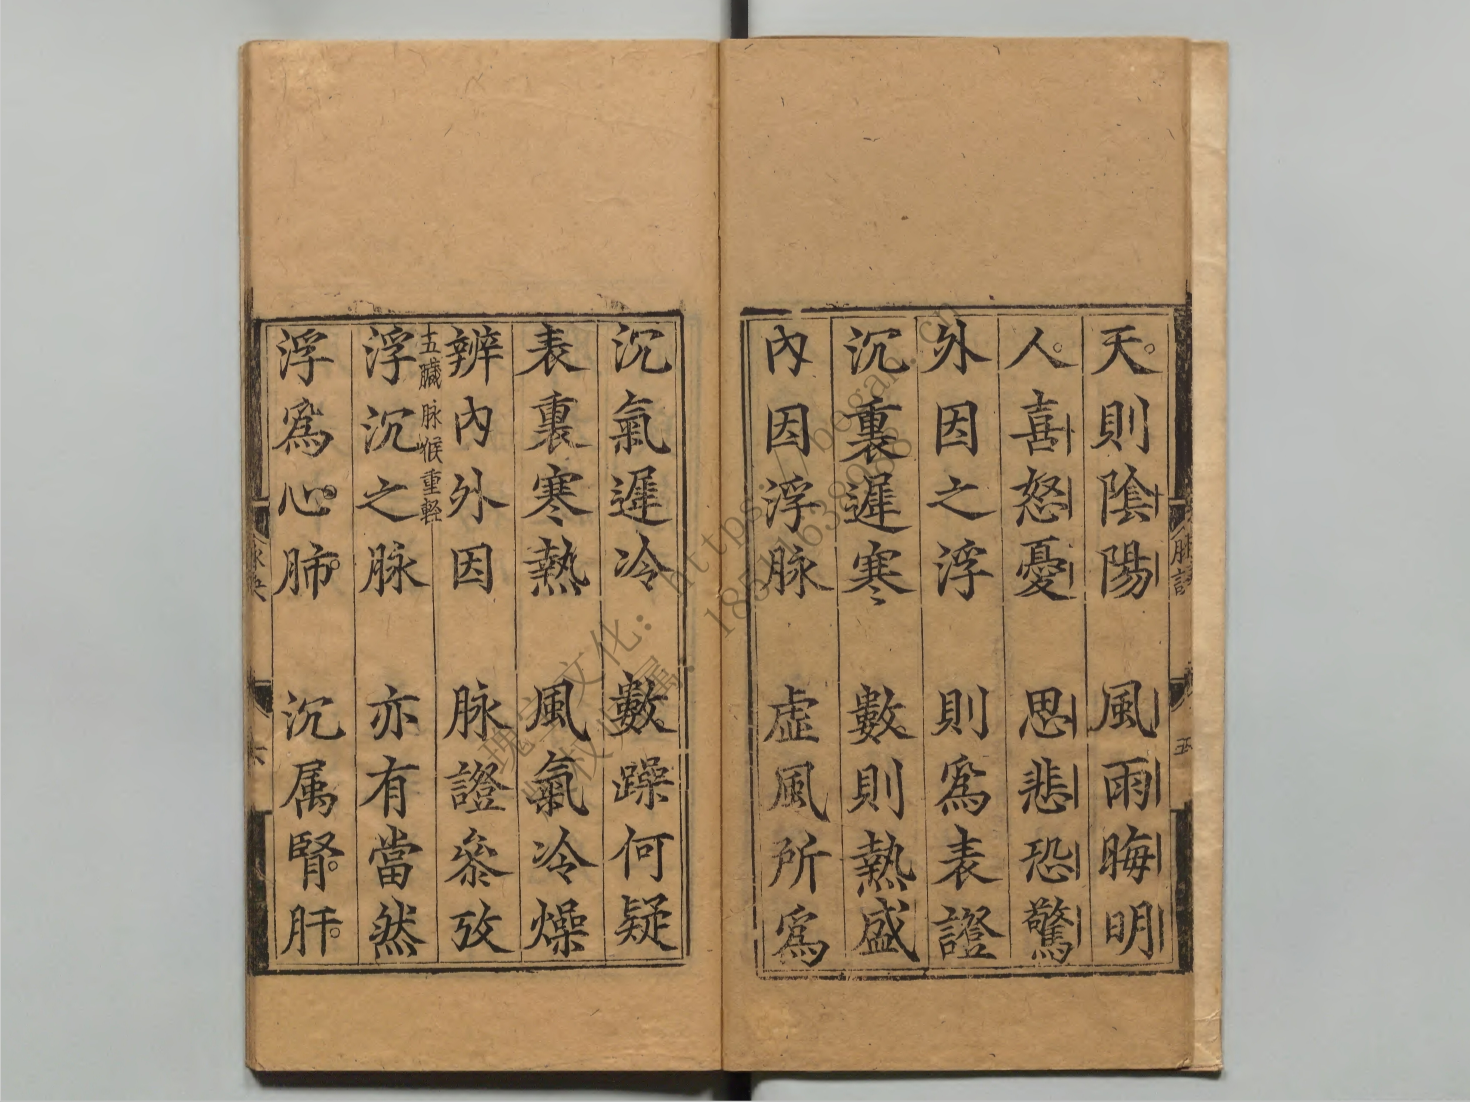 天則陰陽　風雨晦明
人喜怒憂　思悲恐驚
外因之浮　則爲表證
沉裏遲寒　數則熱盛
內因浮脉　虛風所爲
沉氣遲冷　數躁何疑
表裏寒熱　風氣冷燥
辨內外因　脉證參攷
五臟脉候重輕
浮沉之脉　亦有當然
浮爲心肺　沉属腎肝
脉訣
五
六
https://bogan.cn